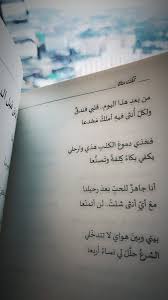 من بعد هذا اليوم.. قلبي فندقٌ
ولكلِّ أنثى فيهِ أملكُ مضجعا
فخذي دموع الكذب هذي وارحلي
يكفي بكاءً كِلفةً وتصنُّعا
أنا جاهزٌ للحبّ بعد رحيلنا
مع أيّ أنثى شئتُ.. لن أتمنّعا
بيني وبين هواي لا تتدخّلي
الشرعُ حلّل لي نساءً أربعا